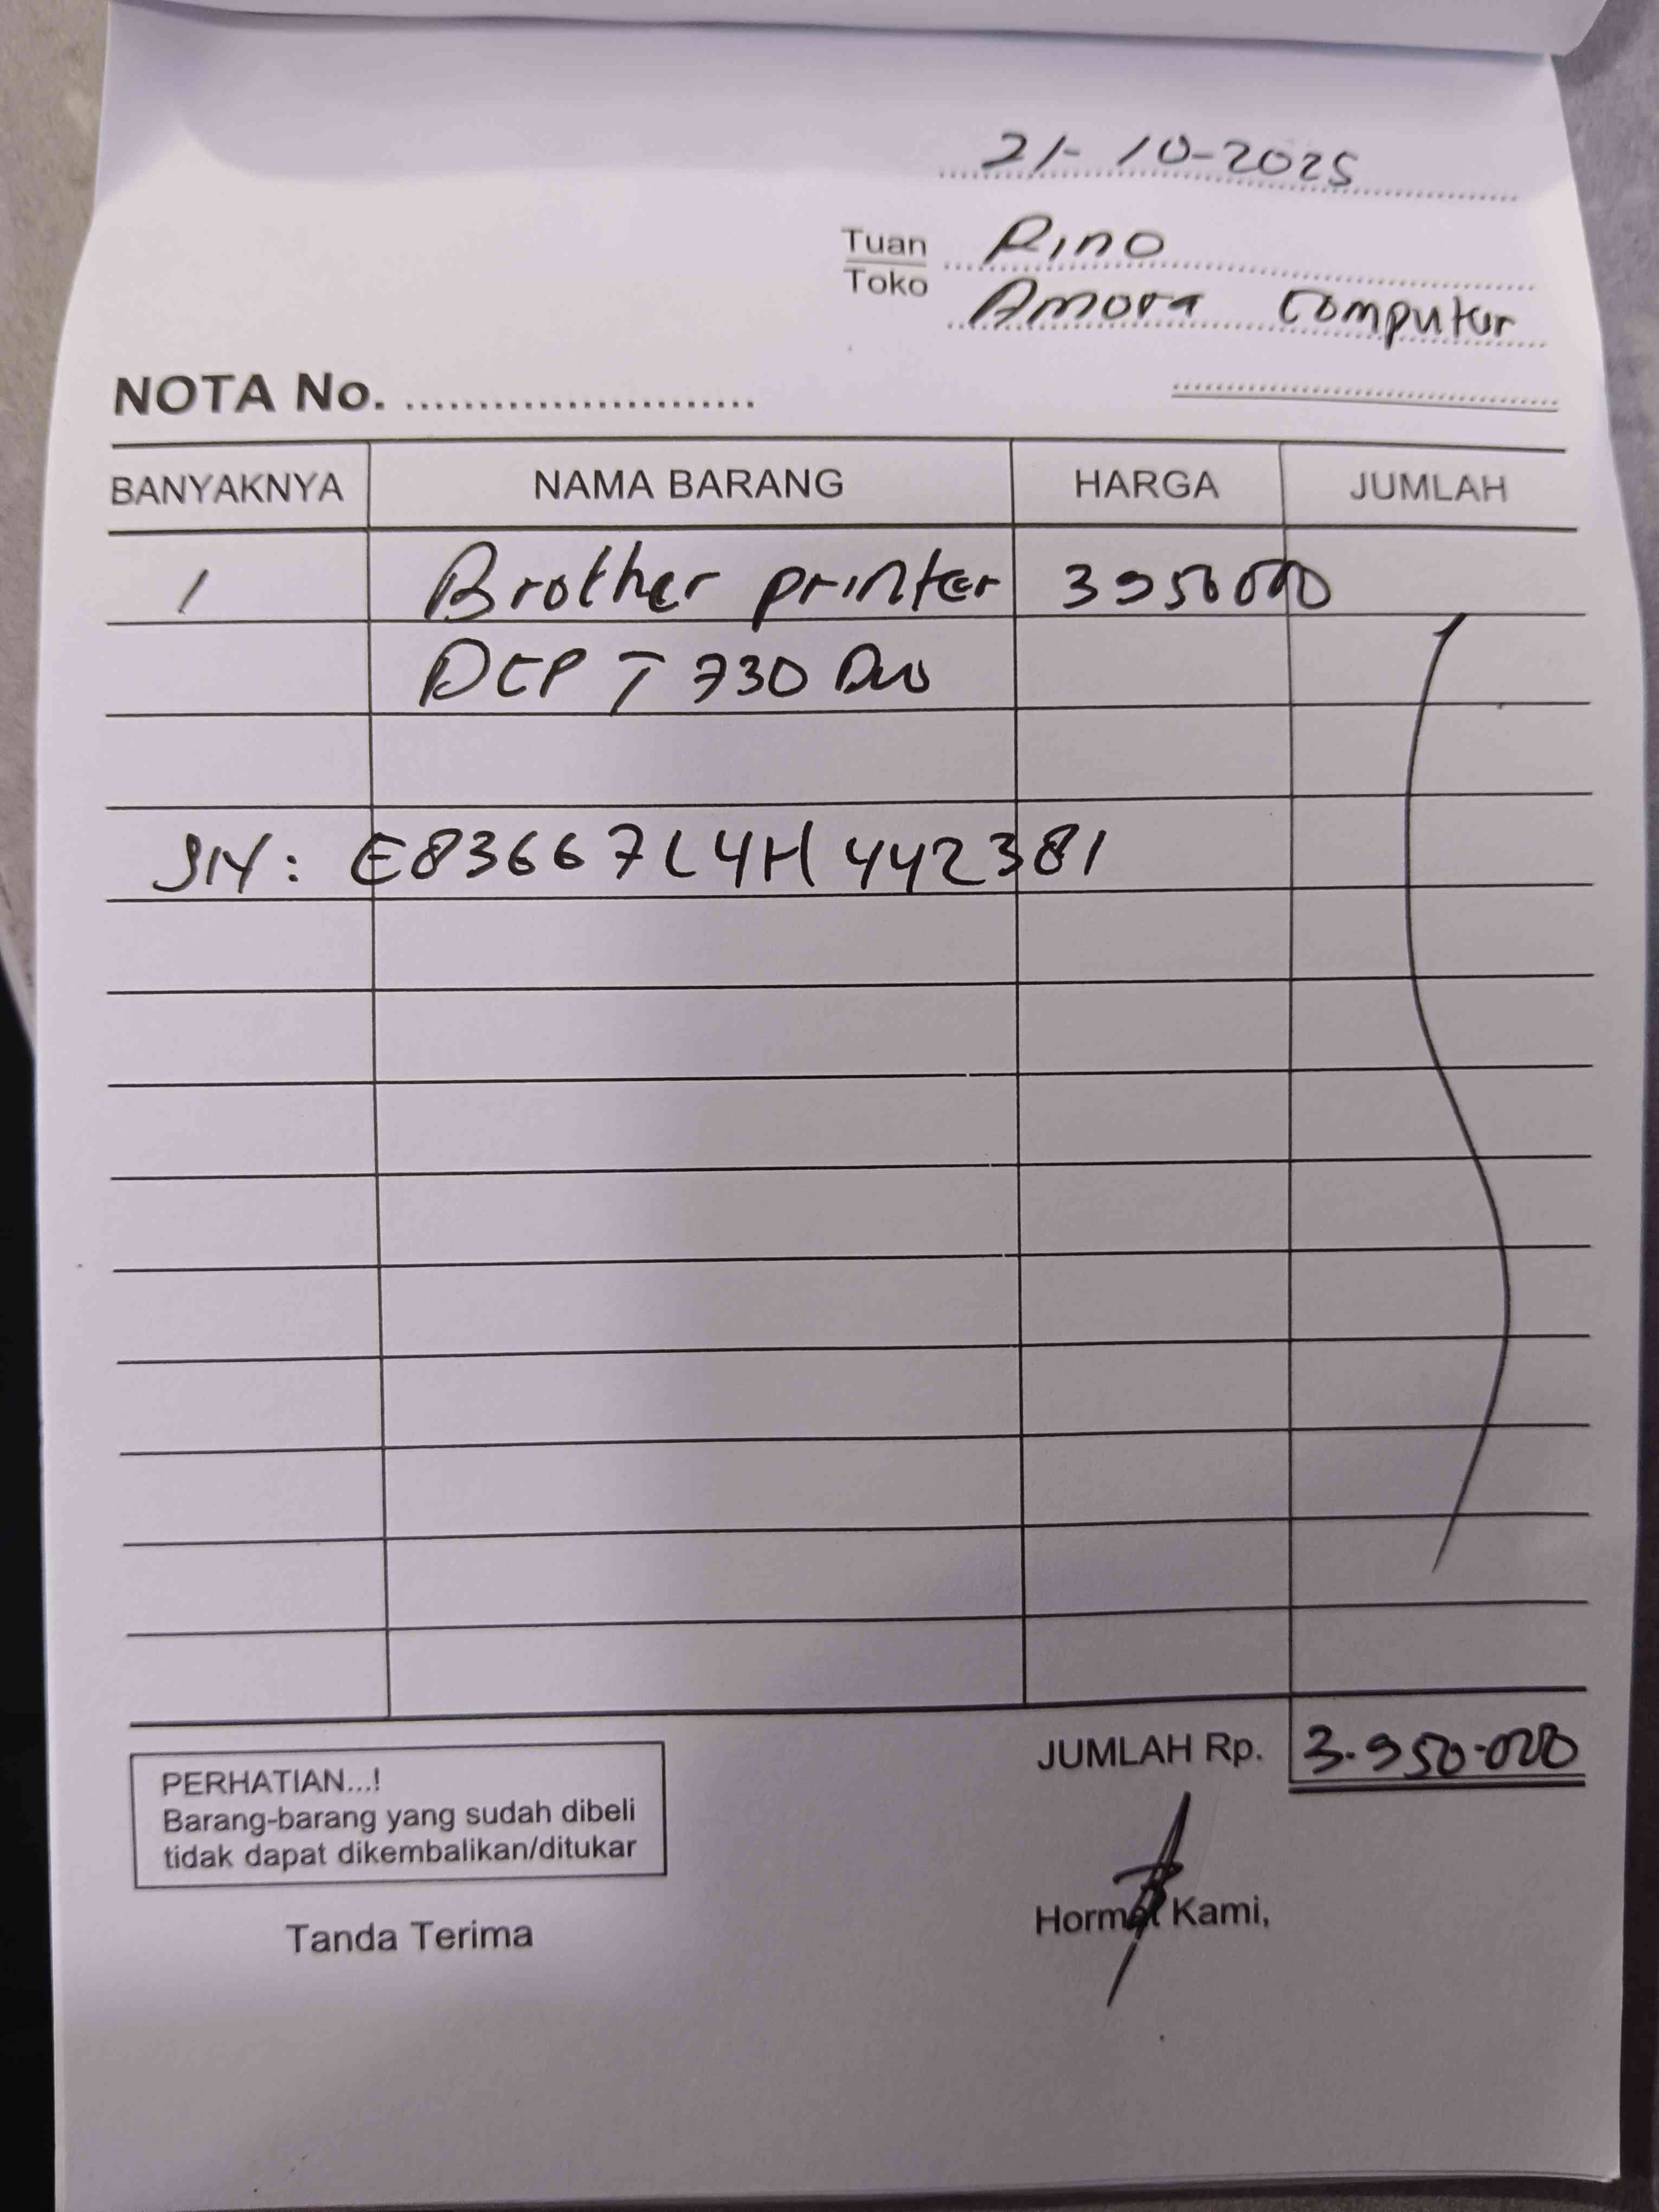 21-10-2025
Tuan Rino
Toko Amora Computer
NOTA No. ........................
BANYAKNYA NAMA BARANG HARGA JUMLAH
1 Brother printer 3950000
DCP T 730 DW
S/N: E83667L4H442381
JUMLAH Rp. 3.950.000
PERHATIAN...!
Barang-barang yang sudah dibeli
tidak dapat dikembalikan/ditukar
Tanda Terima Hormat Kami,